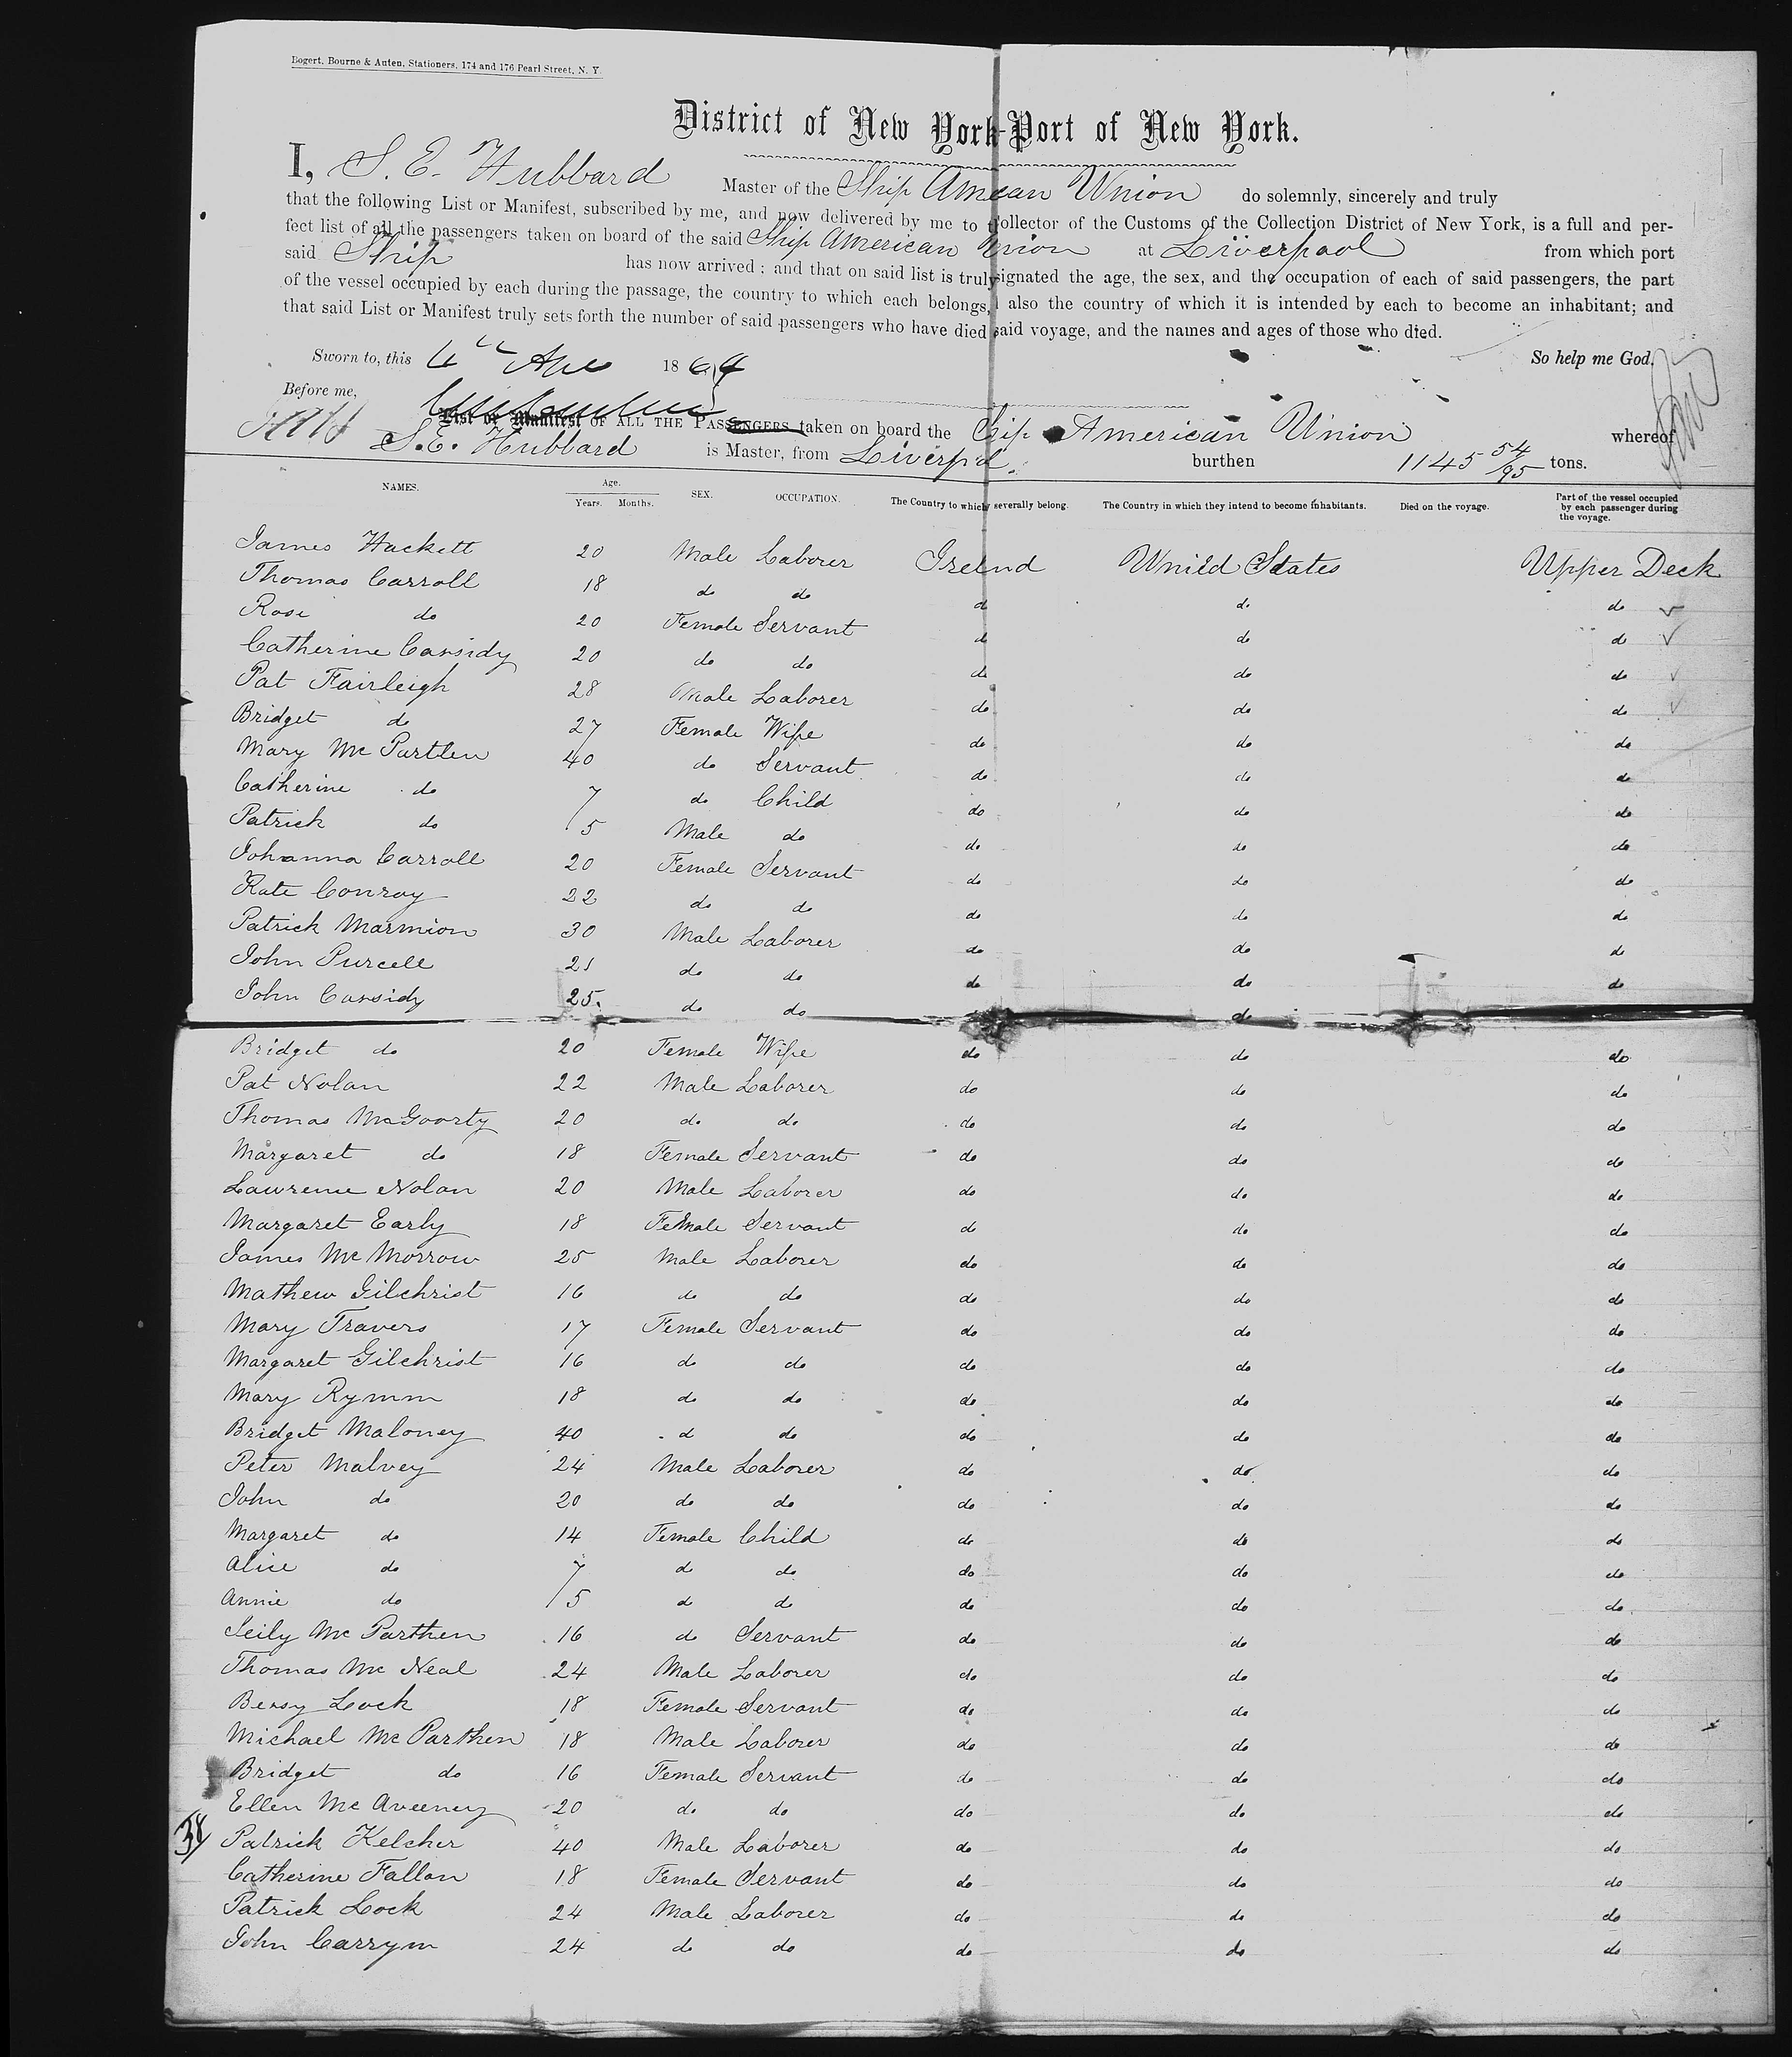 Bogert, Bourne & Auten, Stationers, 174 and 176 Pearl Street, N. Y.
District of New York-Port of New York.
I, S. E. Hubbard Master of the Ship American Union do solemnly, sincerely and truly
that the following List or Manifest, subscribed by me, and now delivered by me to Collector of the Customs of the Collection District of New York, is a full and per-
fect list of all the passengers taken on board of the said Ship American Union at Liverpool from which port
said Ship has now arrived : and that on said list is truly signated the age, the sex, and the occupation of each of said passengers, the part
of the vessel occupied by each during the passage, the country to which each belongs, also the country of which it is intended by each to become an inhabitant; and
that said List or Manifest truly sets forth the number of said passengers who have died said voyage, and the names and ages of those who died.
Sworn to, this 6th 186 So help me God.
Before me,
List or Manifest OF ALL THE PASSENGERS taken on board the Ship American Union whereof
S. E. Hubbard is Master, from Liverp'l burthen 1145 54/95 tons.
NAMES. Age. Years. Months. SEX. OCCUPATION. The Country to which severally belong. The Country in which they intend to become inhabitants. Died on the voyage. Part of the vessel occupied by each passenger during the voyage.
James Hackett 20 Male Laborer Ireland United States Upper Deck
Thomas Carroll 18 do do do do do
Rose do 20 Female Servant do do do
Catherine Cassidy 20 do do do do do
Pat Fairleigh 28 Male Laborer do do do
Bridget do 27 Female Wife do do do
Mary Mc Partlen 40 do Servant do do do
Catherine do 7 do Child do do do
Patrick do 5 Male do do do do
Johanna Carroll 20 Female Servant do do do
Kate Conroy 22 do do do do do
Patrick Marmion 30 Male Laborer do do do
John Purcell 21 do do do do do
John Cassidy 25 do do do
Bridget do 20 Female Wife do do do
Pat Nolan 22 Male Laborer do do do
Thomas McGoorty 20 do do do do do
Margaret do 18 Female Servant do do do
Lawrence Nolan 20 Male Laborer do do do
Margaret Early 18 Female Servant do do do
James Mc Morrow 25 Male Laborer do do do
Mathew Gilchrist 16 do do do do do
Mary Travers 17 Female Servant do do do
Margaret Gilchrist 16 do do do do do
Mary Rymm 18 do do do do do
Bridget Maloney 40 d do do do do
Peter Malvey 24 Male Laborer do do do
John do 20 do do do do do
Margaret do 14 Female Child do do do
Alice do 7 d do do do do
Annie do 5 d do do do do
Seily Mc Parthen 16 do Servant do do do
Thomas Mc Neal 24 Male Laborer do do do
Bessy Lock 18 Female Servant do do do
Michael Mc Parthen 18 Male Laborer do do do
Bridget do 16 Female Servant do do do
Ellen Mc Aveeney 20 do do do do do
38 Patrick Kelcher 40 Male Laborer do do do
Catherine Fallon 18 Female Servant do do do
Patrick Lock 24 Male Laborer do do do
John Carrym 24 do do do do do